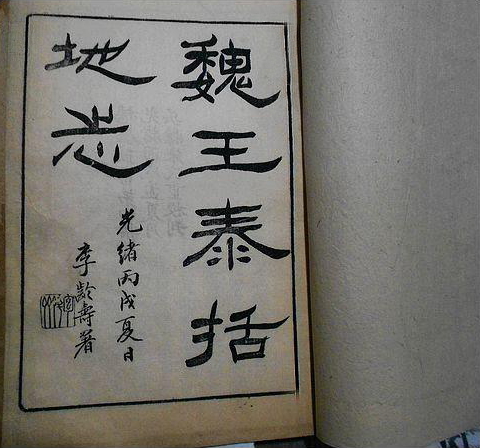 魏王泰括
地志
光緒丙戌夏日
李龄壽署